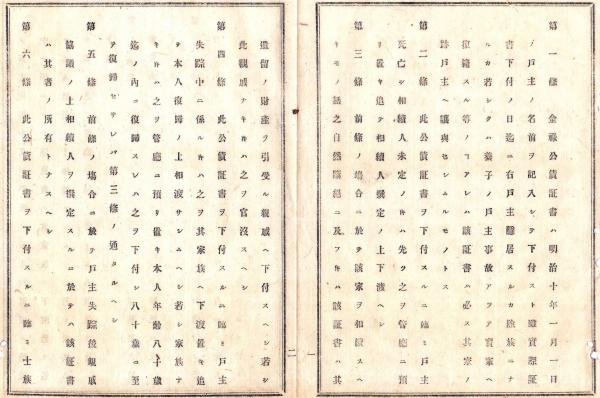 第一條 金祿公債証書ハ明治十年一月一日
ノ戸主ノ名前ヲ記入シテ下付スト雖實際証
書下付ノ日迄ニ右戸主離居スルカ除族ニナ
ルカ若シクハ養子ノ戸主事故アツテ實家ヘ
復籍スル等ノ𪜈アレハ該証書ハ必ス其家ノ
跡戸主ヘ讓與セシムルモノトス
第二條 此公債証書ヲ下付スルニ臨ミ戸主
死亡シ相續人未定ノ𬼀ハ先ツ之ヲ管廳ニ預
リ置キ追テ相續人撰定ノ上下渡ヘシ
第三條 前條ノ塲合ニ於テ該家ヲ相續スヘ
キモノ話之自然廢絕ニ及フ𬼀ハ該証書ハ其
遺留ノ財産ヲ引受ル親戚ヘ下付スヘシ若シ
此親戚ナキ𬼀ハ之ヲ官沒スヘシ
第四條 此公債証書ヲ下付スルニ臨ミ戸主
失踪中ニ係ル𬼀ハ之ヲ其家族ヘ下渡置キ追
テ本人復歸ノ上相渡サシムヘシ若シ家族ナ
キ𬼀ハ之ヲ管廳ニ預リ置キ本人年齡八十歲
迄ノ內ニ復歸スレハ之ヲ下付シ八十歲ニ至
テ復歸セサレハ第三條ノ通タルヘシ
第五條 前條ノ塲合ニ於テ戸主失踪後親戚
協議ノ上相續人ヲ撰定スルニ於テハ該証書
ハ其者ノ所有トナスヘシ
第六條 此公債証書ヲ下付スルニ臨ミ士族
一
二